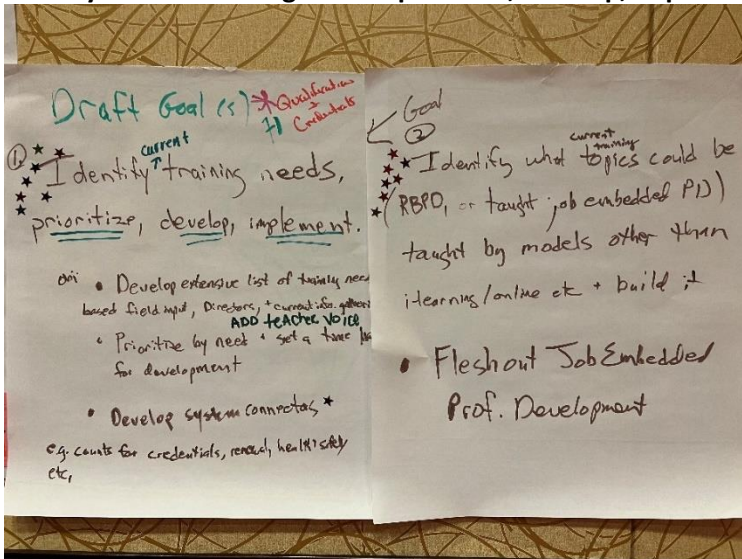 Draft Goal(s) * Qualifications
#1 + Credentials
① Identify current training needs,
prioritize, develop, implement.
• Develop extensive list of training need
based field input, Directors, + current info. gatheri
ADD teACHer VOiCe
• Prioritize by need + set a time
for development
• Develop system connectors
e.g. counts for credentials, renewal, health + safety
etc,
Goal
②
Identify what current training topics could be
(RBPD, or taught job embedded PD)
taught by models other than
i-learning/online etc + build it
• Flesh out Job Embedded
Prof. Development